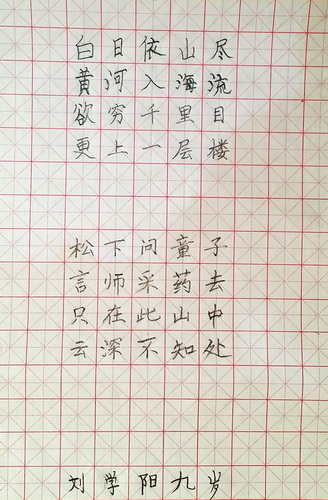 白日依山尽
黄河入海流
欲穷千里目
更上一层楼
松下问童子
言师采药去
只在此山中
云深不知处
刘学阳九岁